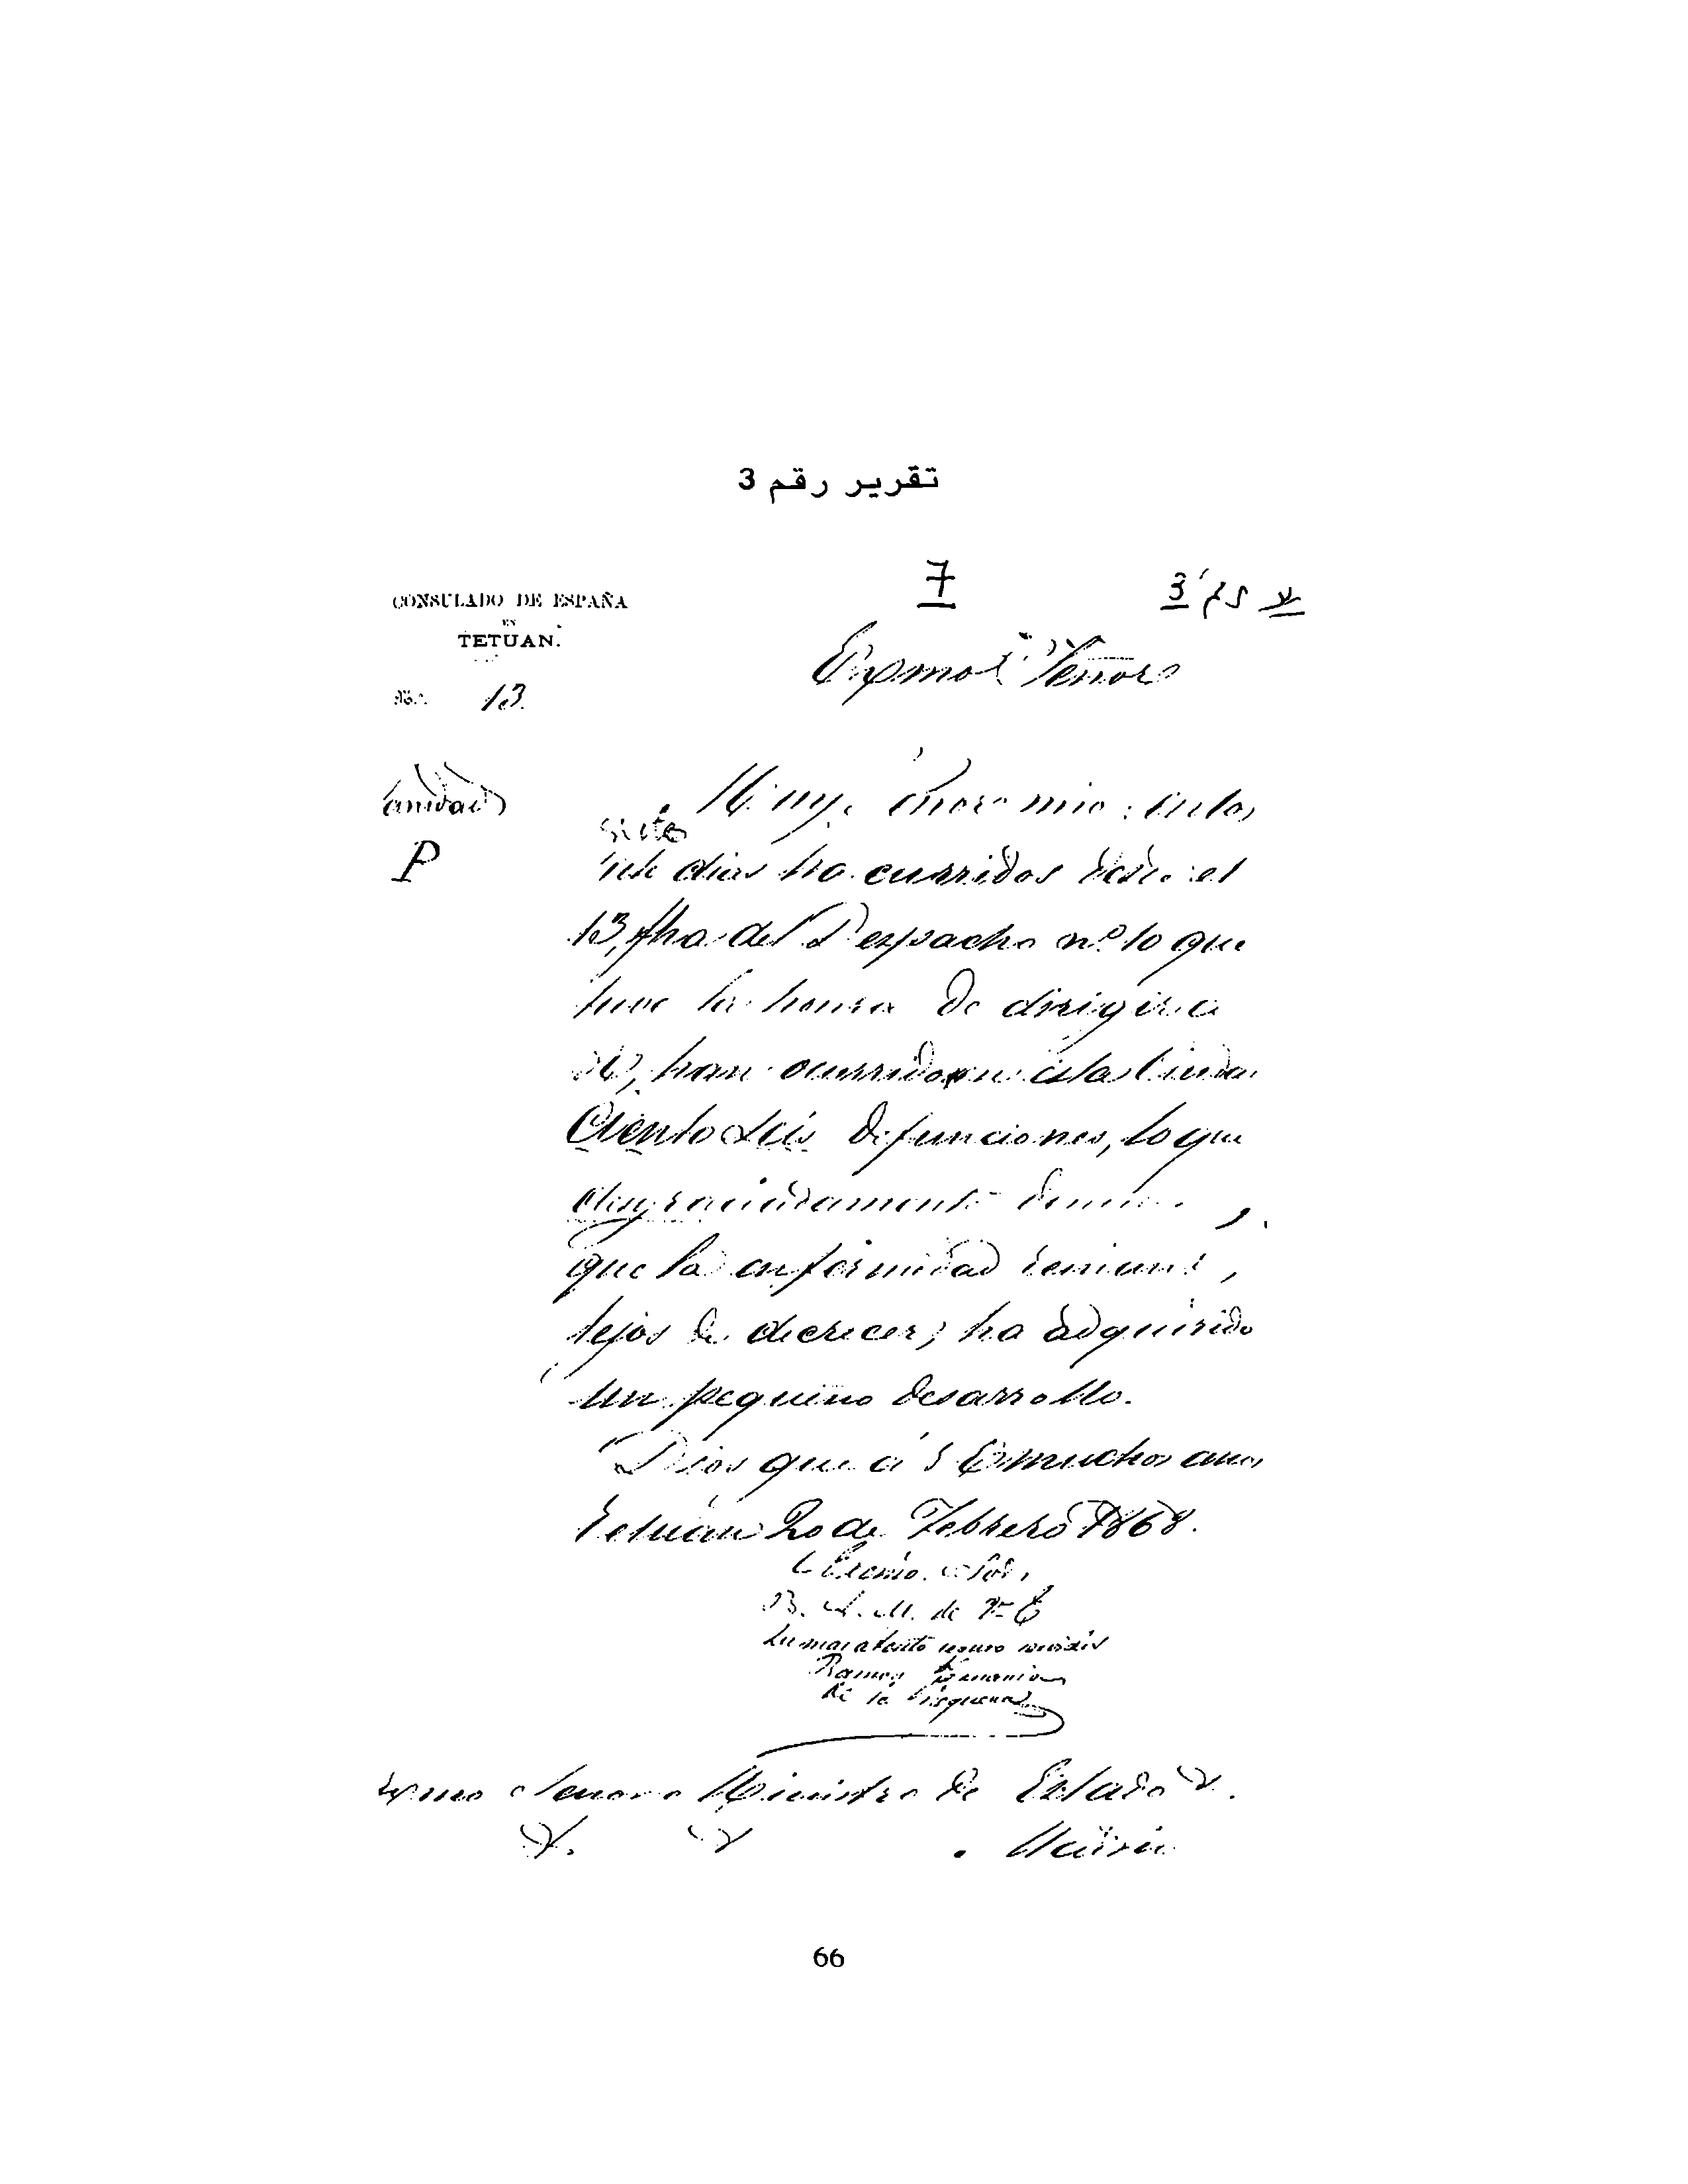 تقرير رقم 3
7
CONSULADO DE ESPAÑA
EN
TETUAN.
Exmo Señor
No. 13.
Sanidad
Muy Señor mio: En los
siete
siete dias trascurridos desde el
13, fha del Despacho nº 10 que
tuve la honra de dirigir a
VE, han ocurrido en esta Ciudad
Ciento seis defunciones, lo que
desgraciadamente
que la enfermedad reinante,
lejos de decrecer, ha adquirido
un pequeño desarrollo.
Dios gue á V E muchos años
Tetuan 20 de Febrero 1868.
Excmo. Sor.
B. L. M. de V. E
Su mas atento seguro servidor
Ramon
de la
Exmo Señor Ministro de Estado &.
&. & . Madrid
66